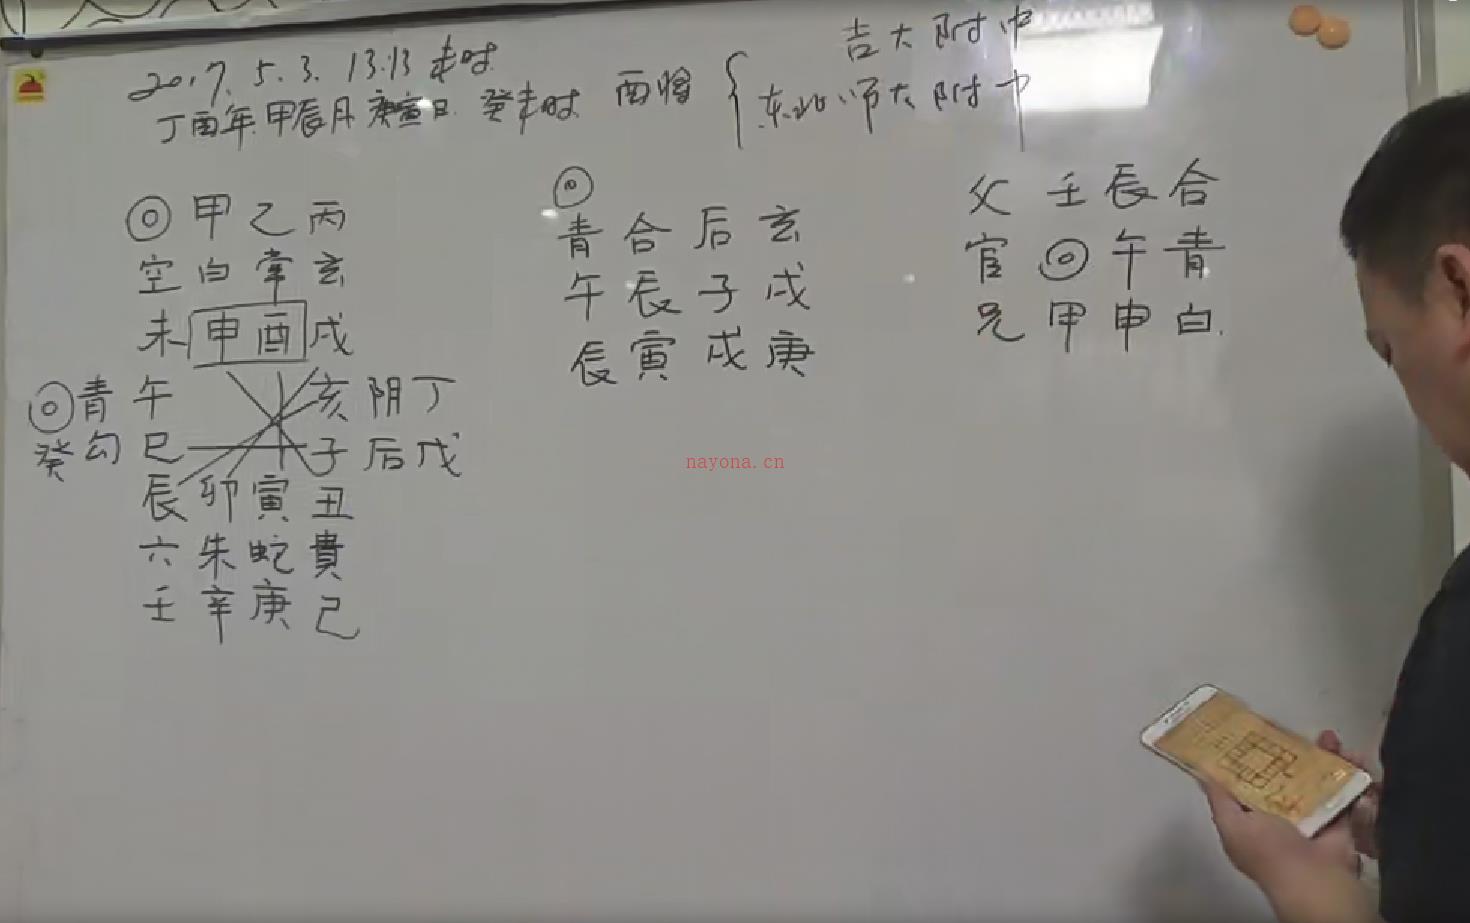 2017. 5. 3. 13:13 未时
丁酉年 甲辰月 庚寅日 癸未时 酉将
吉大附中
东北师大附中
◎ 甲 乙 丙
空 白 常 玄
未 申 酉 戌
◎ 青 午 亥 阴 丁
癸 勾 巳 子 后 戊
辰 卯 寅 丑
六 朱 蛇 貴
壬 辛 庚 己
◎
青 合 后 玄
午 辰 子 戌
辰 寅 戌 庚
父 壬 辰 合
官 ◎ 午 青
兄 甲 申 白.
nayona.cn